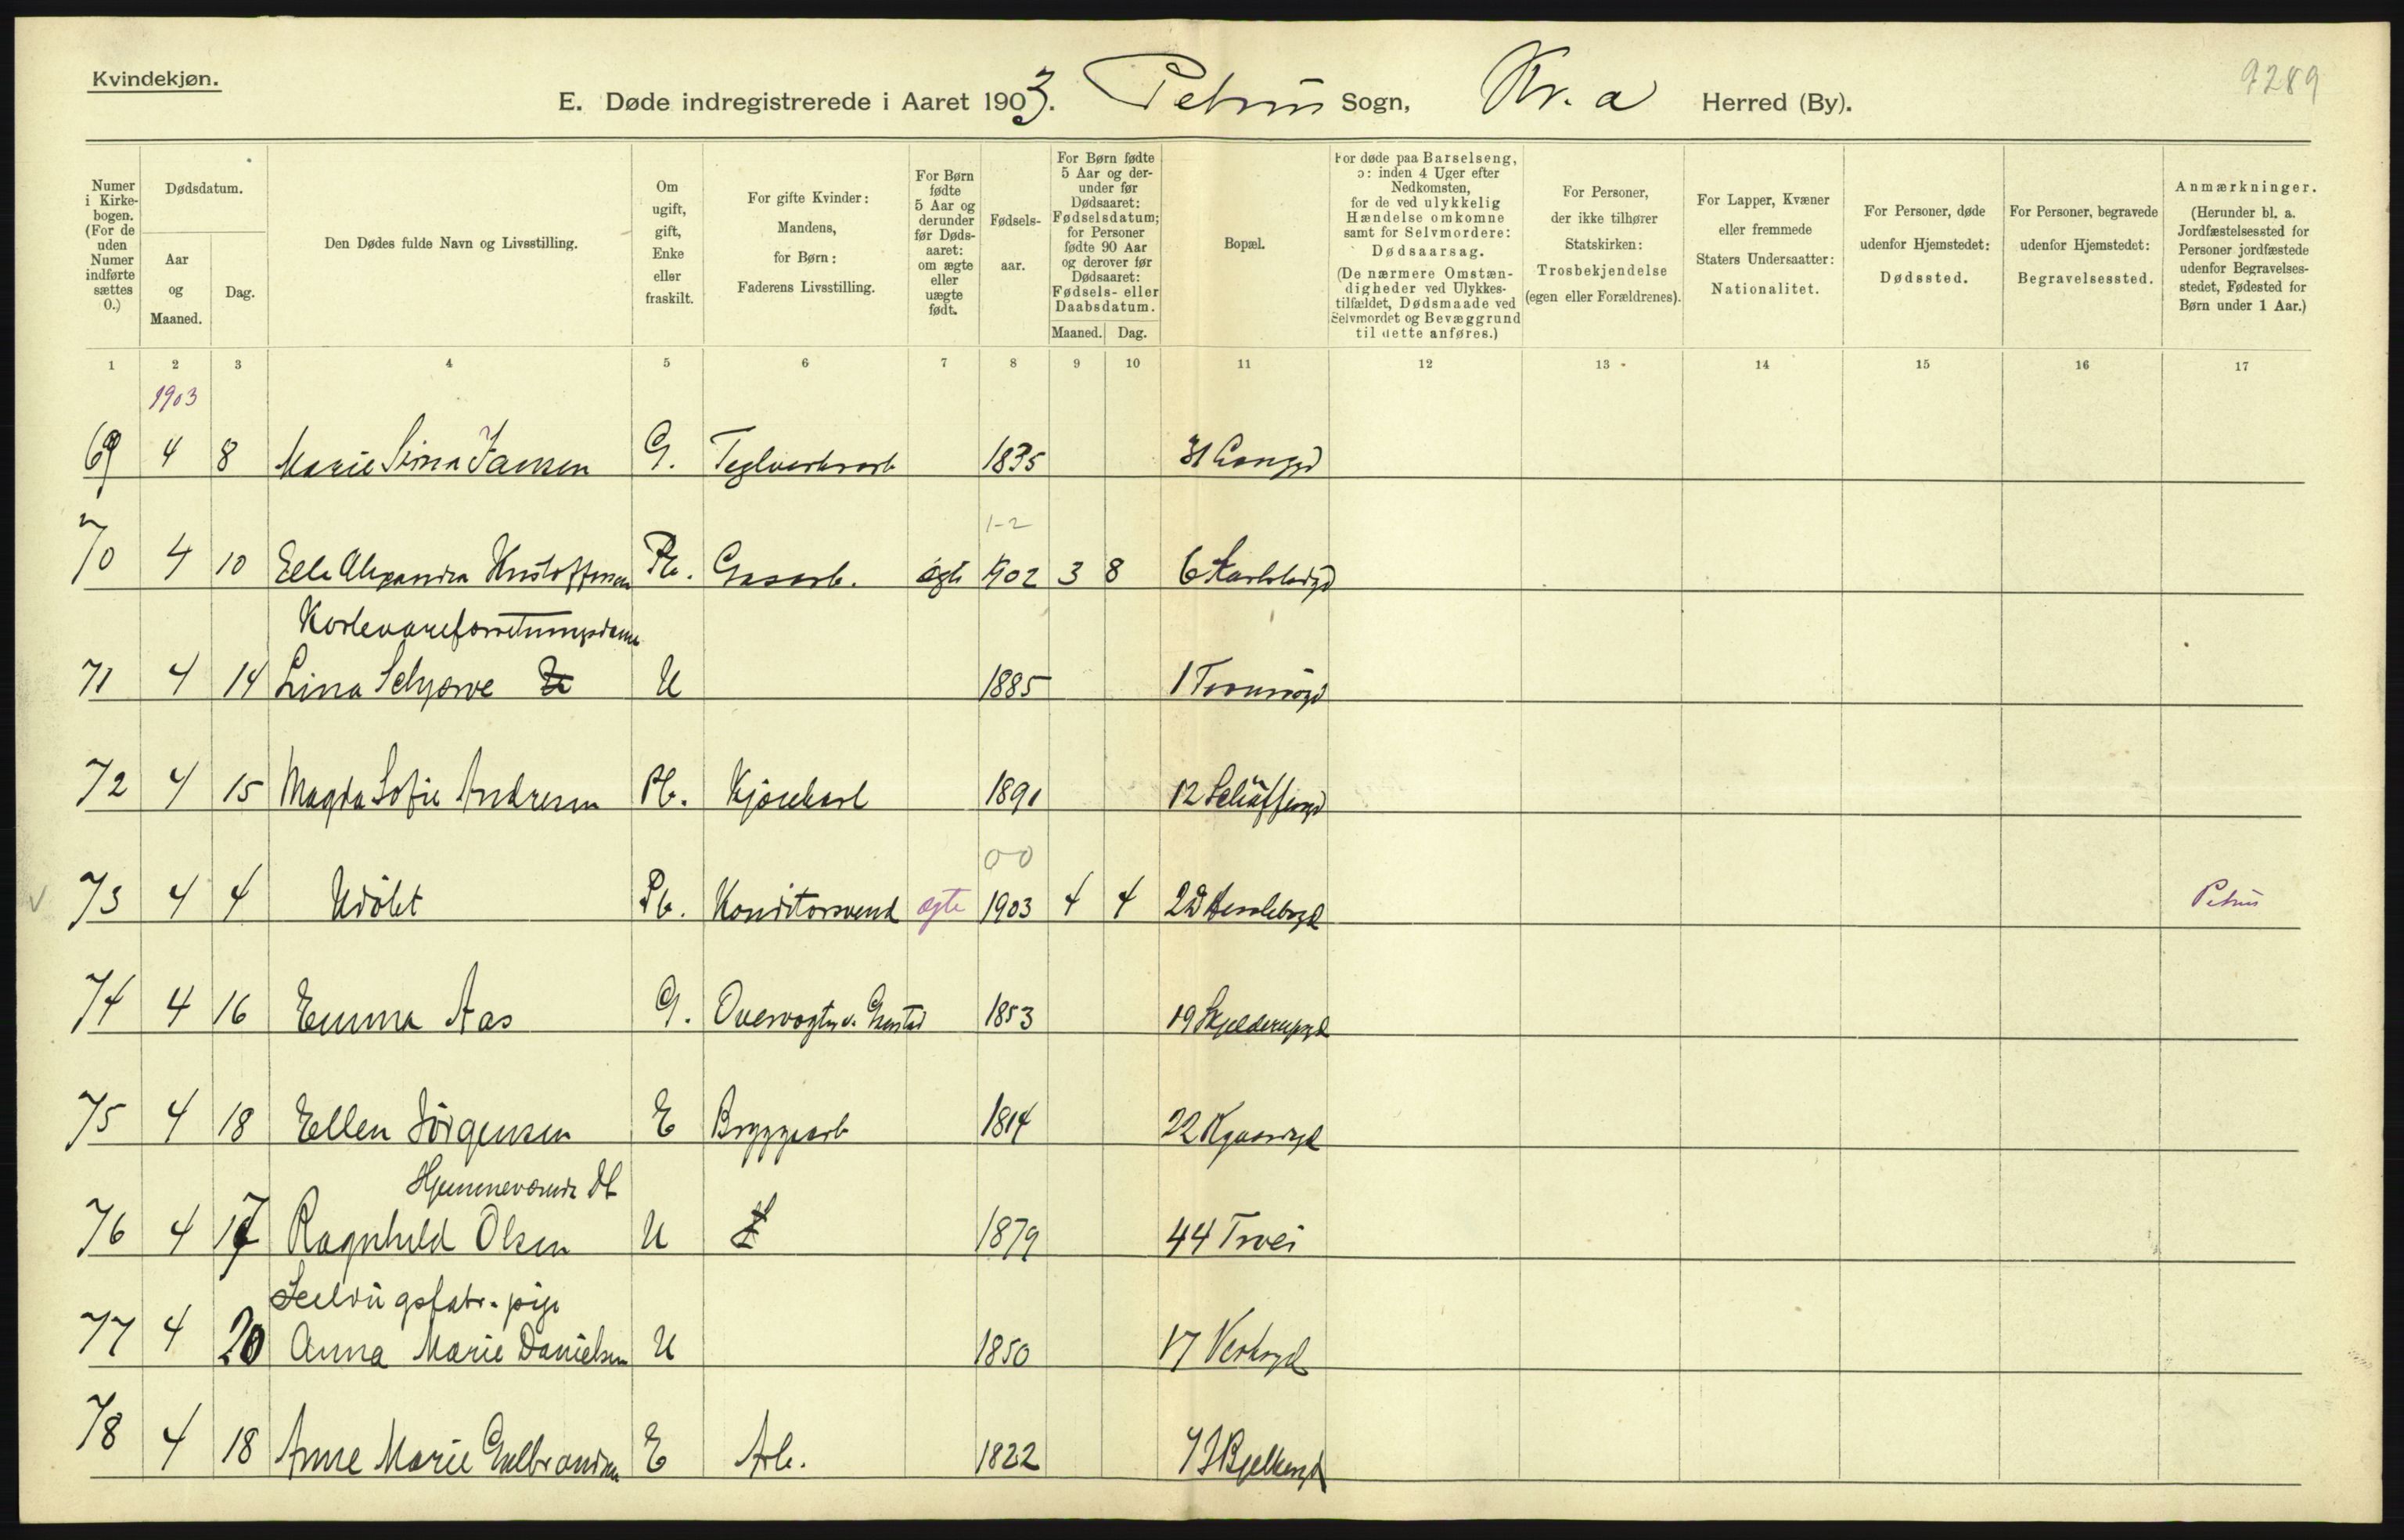 Kvindekjøn.
E. Døde indregistrerede i Aaret 1903. Petrus Sogn, Kr.a Herred (By).
9289
Numer i Kirke-bogen. (For de uden Numer indførte sættes 0.)
Dødsdatum.
Aar og Maaned.
Dag.
Den Dødes fulde Navn og Livsstilling.
Om ugift, gift, Enke eller fraskilt.
For gifte Kvinder: Mandens, for Børn: Faderens Livsstilling.
For Børn fødte 5 Aar og derunder før Døds-aaret: om ægte eller uægte født.
Fødsels-aar.
For Børn fødte 5 Aar og der-under før Dødsaaret: Fødselsdatum; for Personer fødte 90 Aar og derover før Dødsaaret: Fødsels- eller Daabsdatum.
Maaned. Dag.
Bopæl.
For døde paa Barselseng, ɔ: inden 4 Uger efter Nedkomsten, for de ved ulykkelig Hændelse omkomne samt for Selvmordere: Dødsaarsag. (De nærmere Omstæn-digheder ved Ulykkes-tilfældet, Dødsmaade ved Selvmordet og Bevæggrund til dette anføres.)
For Personer, der ikke tilhører Statskirken: Trosbekjendelse (egen eller Forældrenes).
For Lapper, Kvæner eller fremmede Staters Undersaatter: Nationalitet.
For Personer, døde udenfor Hjemstedet: Dødssted.
For Personer, begravede udenfor Hjemstedet: Begravelsessted.
Anmærkninger. (Herunder bl. a. Jordfæstelsessted for Personer jordfæstede udenfor Begravelses-stedet, Fødested for Børn under 1 Aar.)
1 2 3 4 5 6 7 8 9 10 11 12 13 14 15 16 17
1903
69 4 8 Marie Sina Jansen G. Teglverksarb 1835 31
1-2
70 4 10 Ella Alexandra Kristoffersen Pb. Gasarb. ægte 1902 3 8 6
Kortevareforretningsdame
71 4 14 Lina U 1885 1 Tromsögd
72 4 15 Magda Sofie Andresen Pb. Kjørekarl 1891 12 Schäffersgd
00
73 4 4 Udöbt Pb. Konditorsvend ægte 1903 4 4 22 Herslebsgd Petrus
74 4 16 Emma Aas G. Overvogter v. Gaustad 1853 19 Skjelderupsgd
75 4 18 Ellen Jörgensen E Bryggearb 1814 22
Hjemmeværende Dt
76 4 17 Ragnhild Olsen U 1879 44 Tr.vei
Seildugsfabr. pige
77 4 20 Anna Marie Danielsen U 1850 17 Verksgd
78 4 18 Anne Marie Gulbrandsen E Arb. 1822